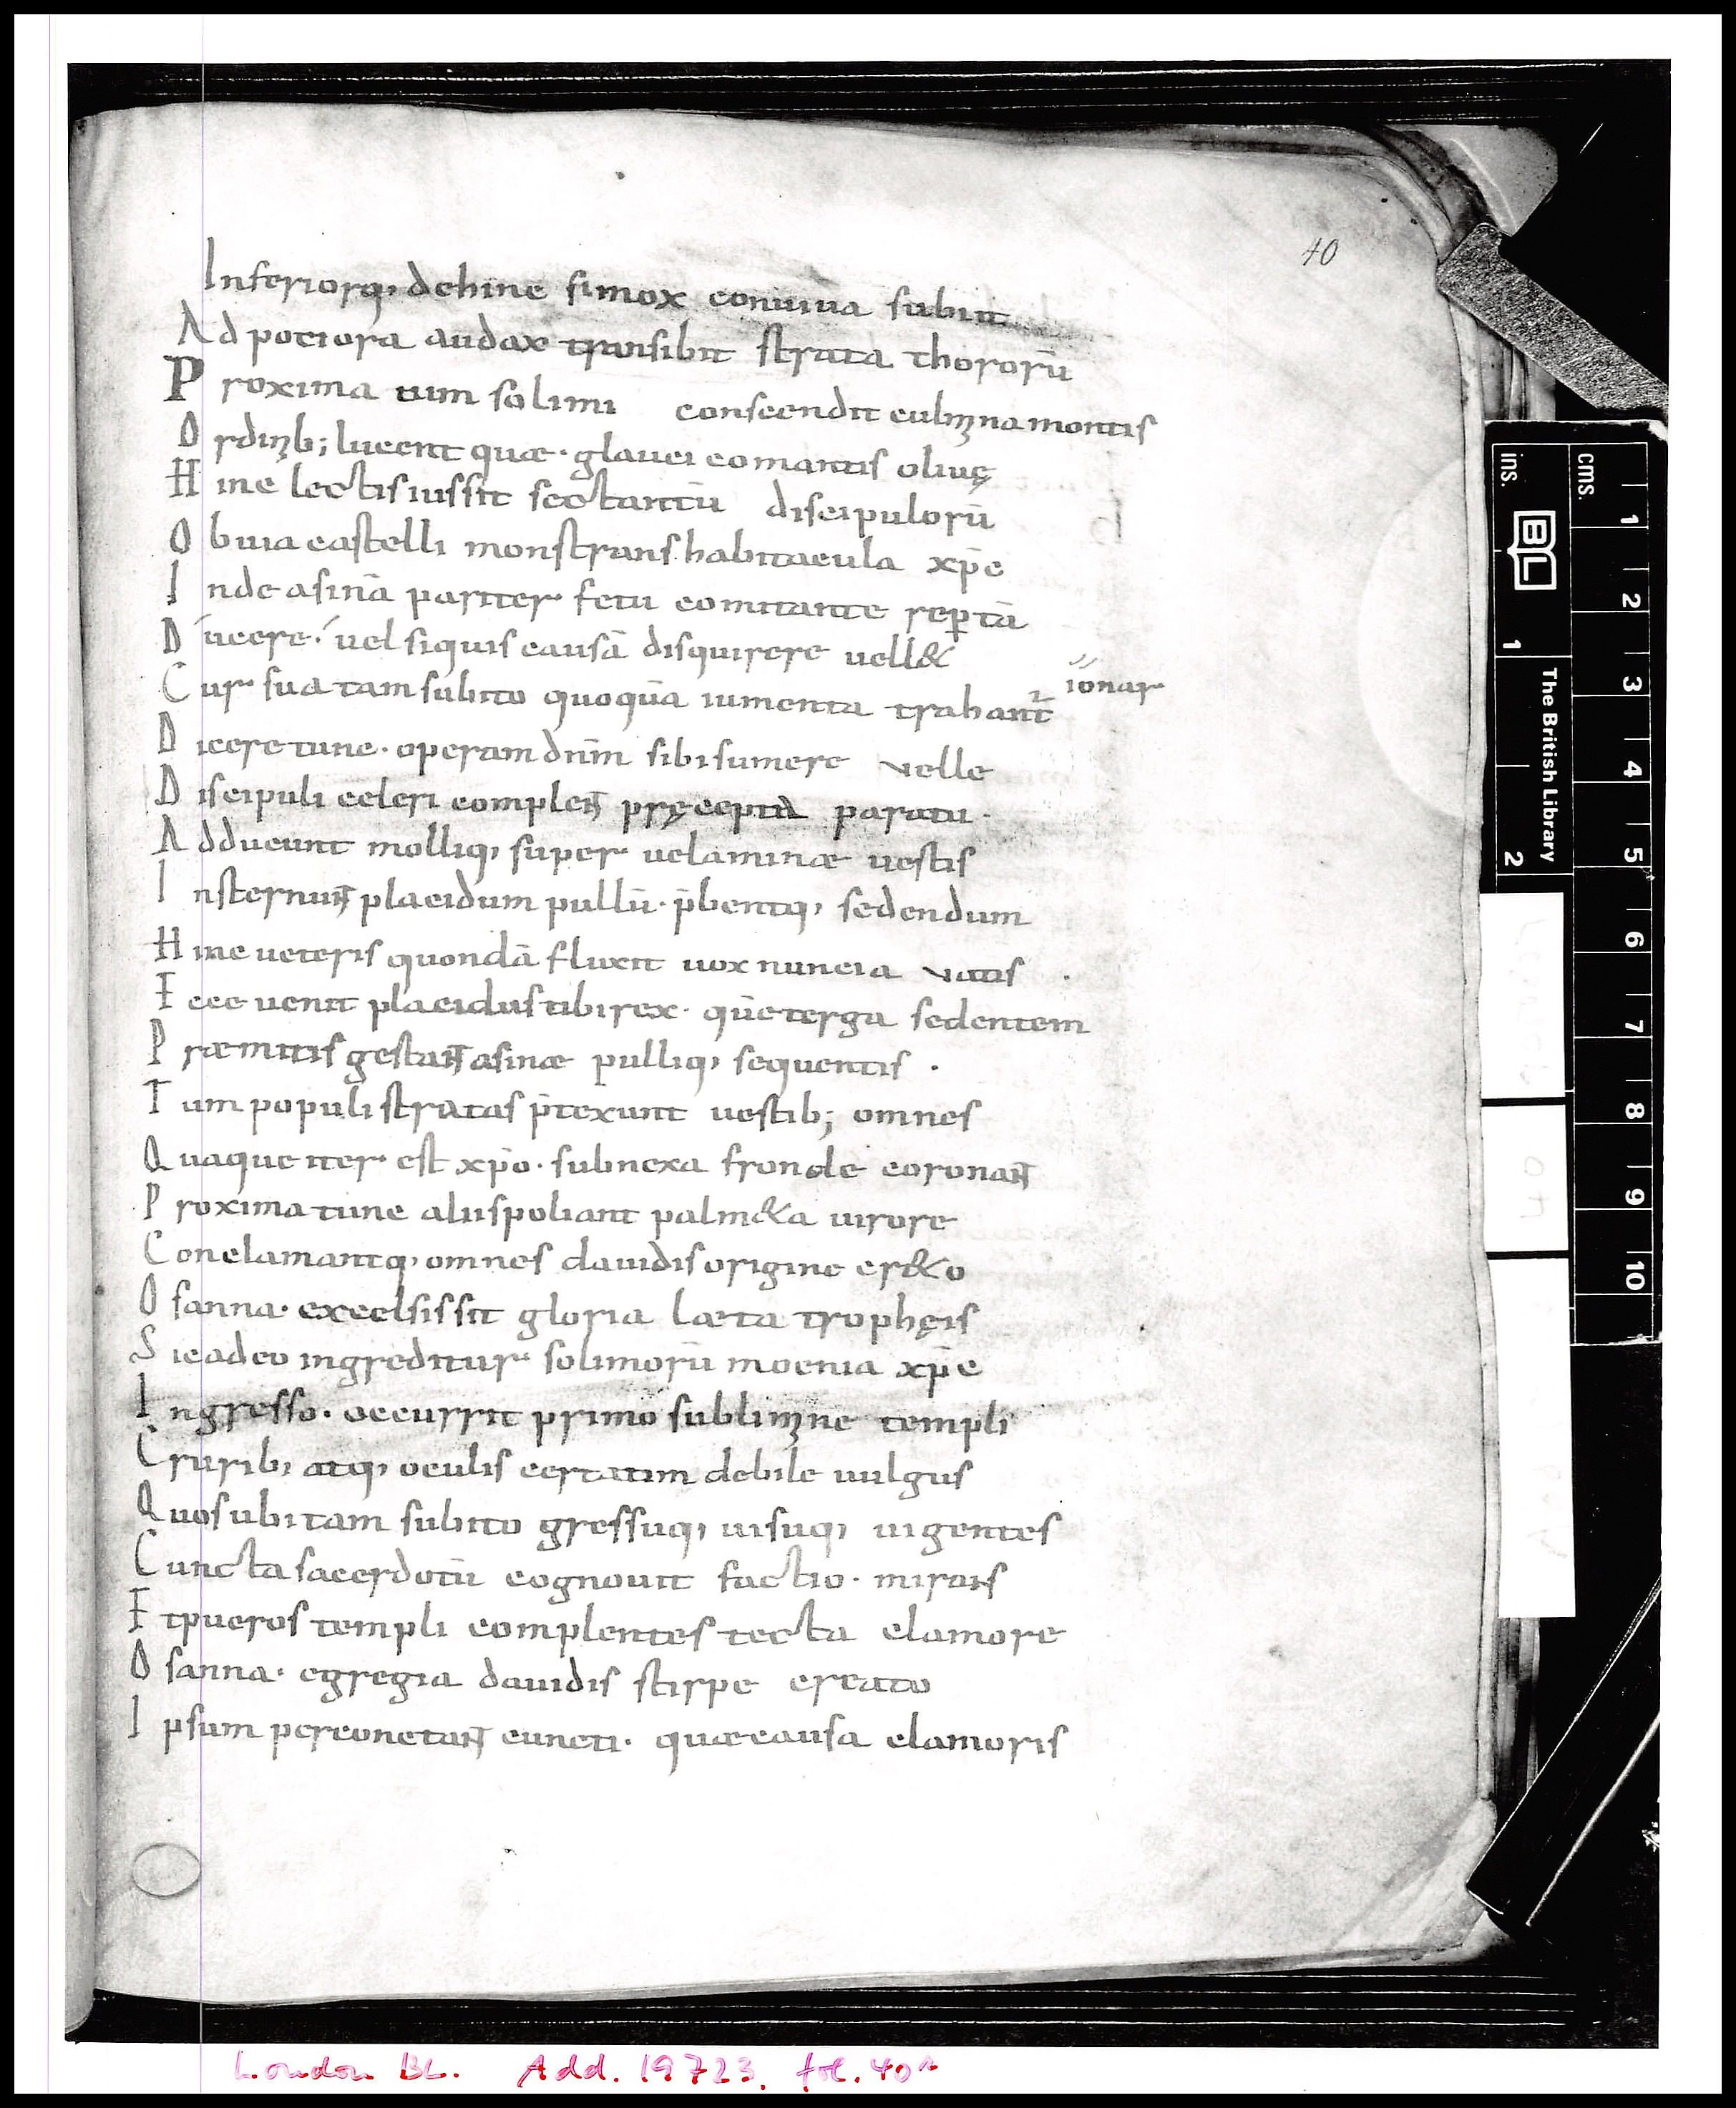 40
Inferiorq; dehinc simox conuiua subint
Ad potiora audax transibit strata thororū
Proxima tum solimi conscendit culmina montis
Ordinib; lucent quæ · glauci comantis oliuę
Hinc lectis iussit sectantū discipulorū
Obuia castelli monstrans habitacula xp̄c
Inde asinā pariter fetu comitante reptā
Ducere · uel siquis causā disquirere uell&
Cur sua tam subito quoquā iumenta trahant
ionar
Dicere tunc · operam dn̄m sibi sumere velle
Discipuli celeri complent pręcepta paratu ·
Adducunt molliq; super uelaminæ uestis
Insternunt placidum pullū · p̄bentq; sedendum
Hinc ueteris quondā fluxit uox nuncia vatis ·
Ecce uenit placidus tibi rex · quē terga sedentem
Præmitis gestant asinæ pulliq; sequentis ·
Tum populi stratas p̄texunt uestib; omnes
Quaque iter est xp̄o · subnexa fronde coronant
Proxima tunc alii spoliant palm&a uirore
Conclamantq; omnes dauidis origine cr&o
Osanna · excelsis sit gloria læta trophęis
Sic adeo ingreditur solimorū moenia xp̄c
Ingresso · occurrit primo sub limine templi
Crurib; atq; oculis certatim debile uulgus
Quos ubi tam subito gressuq; uisuq; uigentes
Cuncta sacerdotū cognouit factio · mirans
Et pueros templi complentes tecta clamore
Osanna · egregia dauidis stirpe creato
Ipsum percunctant cuncti · quæ causa clamoris
cms.
1
2
3
4
5
6
7
8
9
10
ins.
1
2
BL
The British Library
London BL. Add. 19723. fol. 40r